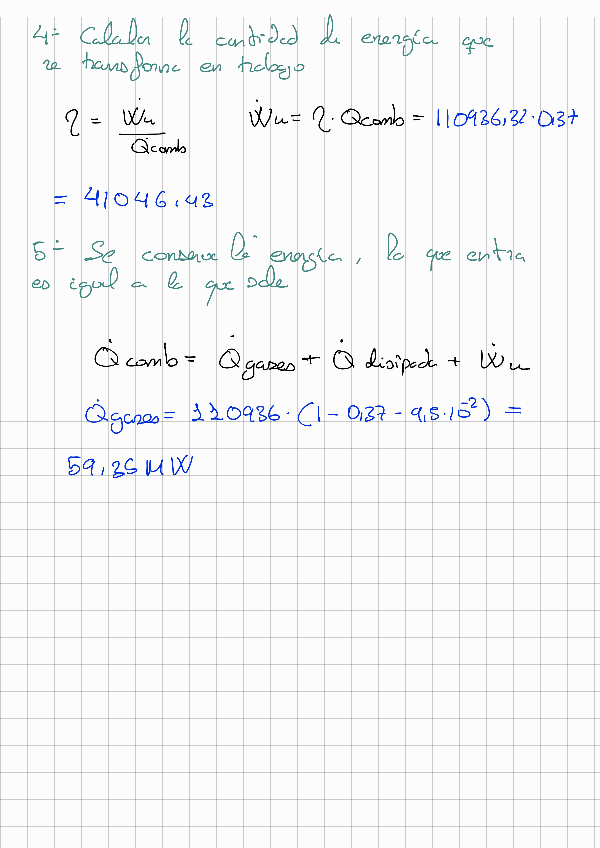 4- Calcular la cantidad de energía que
se transforma en trabajo
η = Ẇu / Q̇comb Ẇu = η · Q̇comb = 110936,32 · 0,37
= 41046,43
5- Se conserva la energía, la que entra
es igual a la que sale
Q̇comb = Q̇gases + Q̇ disipada + Ẇu
Q̇gases = 110936 · (1 - 0,37 - 9,5·10⁻²) =
59,35 MW